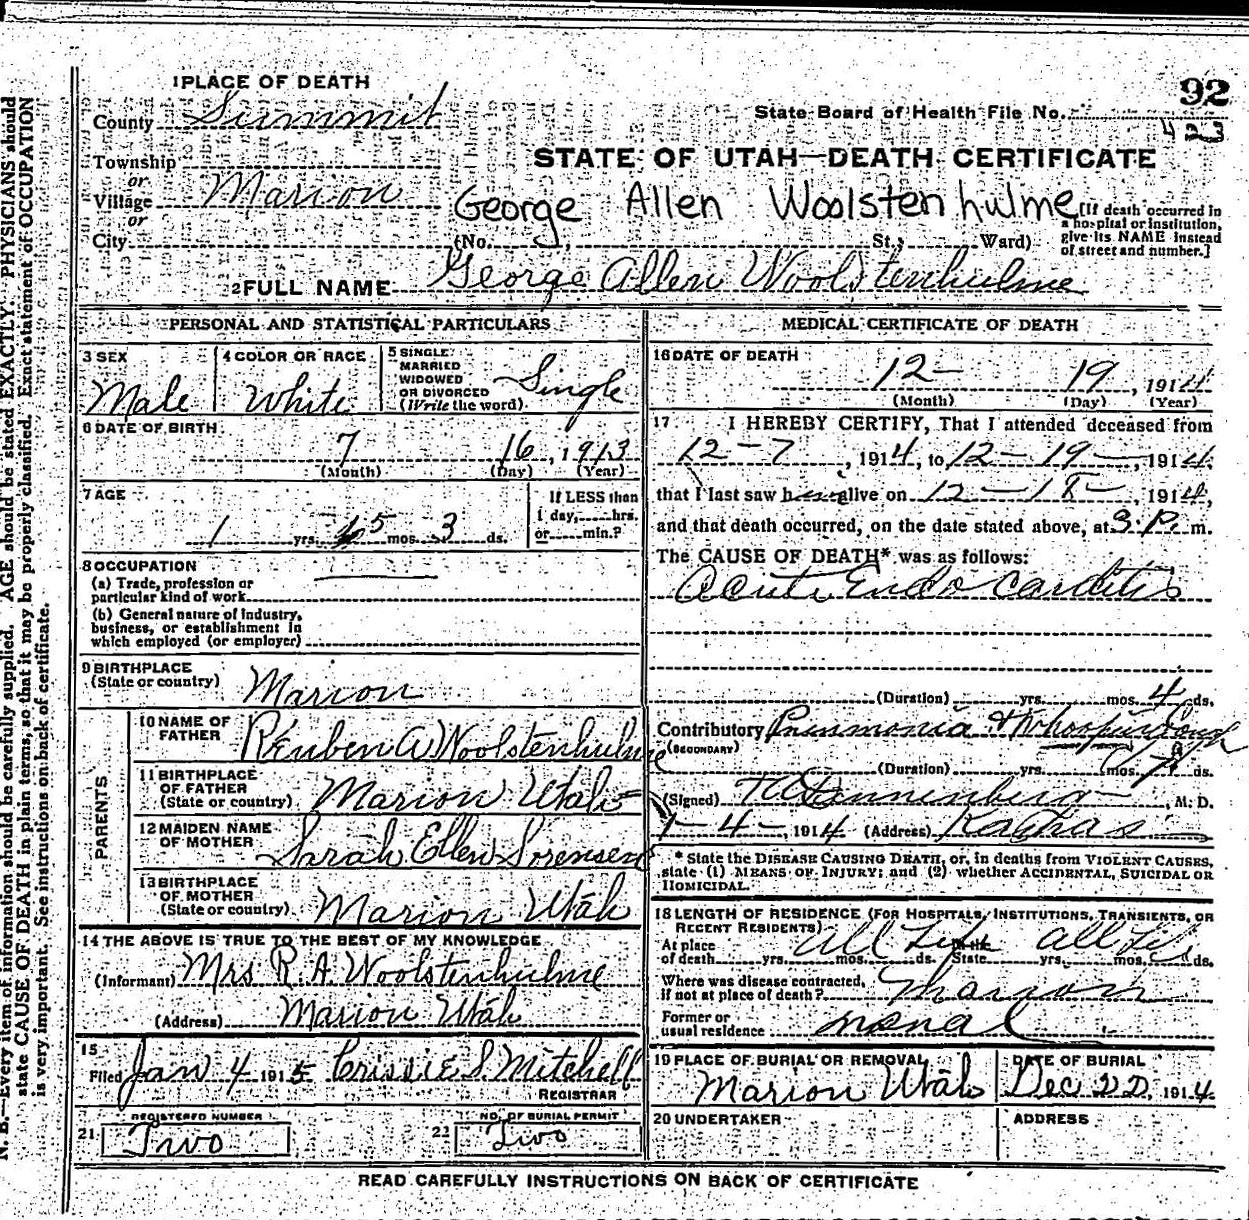 92
1 PLACE OF DEATH
County Summit
State Board of Health File No. 
4 23
STATE OF UTAH—DEATH CERTIFICATE
Township
or
Village Marion
or
City
George Allen Woolstenhulme
(No. St.; Ward)
[If death occurred in
a hospital or institution,
give its NAME instead
of street and number.]
2 FULL NAME George Allen Woolstenhulme
PERSONAL AND STATISTICAL PARTICULARS
3 SEX
Male
4 COLOR OR RACE
White
5 SINGLE
MARRIED
WIDOWED
OR DIVORCED
(Write the word)
Single
6 DATE OF BIRTH
7 16, 1913
(Month) (Day) (Year)
7 AGE
1 yrs. 5 mos. 3 ds.
If LESS than
1 day, hrs.
or min.?
8 OCCUPATION
(a) Trade, profession or
particular kind of work
(b) General nature of industry,
business, or establishment in
which employed (or employer)
9 BIRTHPLACE
(State or country) Marion
PARENTS
10 NAME OF
FATHER Reuben A Woolstenhulme
11 BIRTHPLACE
OF FATHER
(State or country) Marion Utah
12 MAIDEN NAME
OF MOTHER Sarah Ellen Sorensen
13 BIRTHPLACE
OF MOTHER
(State or country) Marion Utah
14 THE ABOVE IS TRUE TO THE BEST OF MY KNOWLEDGE
(Informant) Mrs R. A. Woolstenhulme
(Address) Marion Utah
15
Filed Jan 4 1915 Crissie S. Mitchell
REGISTRAR
REGISTERED NUMBER
21 Two
NO. OF BURIAL PERMIT
22 Two
MEDICAL CERTIFICATE OF DEATH
16 DATE OF DEATH
12- 19, 1914
(Month) (Day) (Year)
17 I HEREBY CERTIFY, That I attended deceased from
12-7, 1914, to 12-19-, 1914.
that I last saw h alive on 12-18-, 1914,
and that death occurred, on the date stated above, at 3 P. m.
The CAUSE OF DEATH* was as follows:
Acute Endo carditis
(Duration) yrs. mos. 4 ds.
Contributory Pneumonia & Whooping Cough
(SECONDARY)
(Duration) yrs. mos. ds.
(Signed) , M. D.
1-4-, 1914 (Address) Kamas
* State the DISEASE CAUSING DEATH, or, in deaths from VIOLENT CAUSES,
state (1) MEANS OF INJURY; and (2) whether ACCIDENTAL, SUICIDAL OR
HOMICIDAL.
18 LENGTH OF RESIDENCE (FOR HOSPITALS, INSTITUTIONS, TRANSIENTS, OR
RECENT RESIDENTS)
At place
of death yrs. mos. ds. All Life In the State yrs. mos. ds. All Life
Where was disease contracted,
if not at place of death? Marion
Former or
usual residence
19 PLACE OF BURIAL OR REMOVAL
Marion Utah
DATE OF BURIAL
Dec 22, 1914
20 UNDERTAKER
ADDRESS
READ CAREFULLY INSTRUCTIONS ON BACK OF CERTIFICATE
N. B.—Every item of information should be carefully supplied. AGE should be stated EXACTLY. PHYSICIANS should
state CAUSE OF DEATH in plain terms, so that it may be properly classified. Exact statement of OCCUPATION
is very important. See instructions on back of certificate.